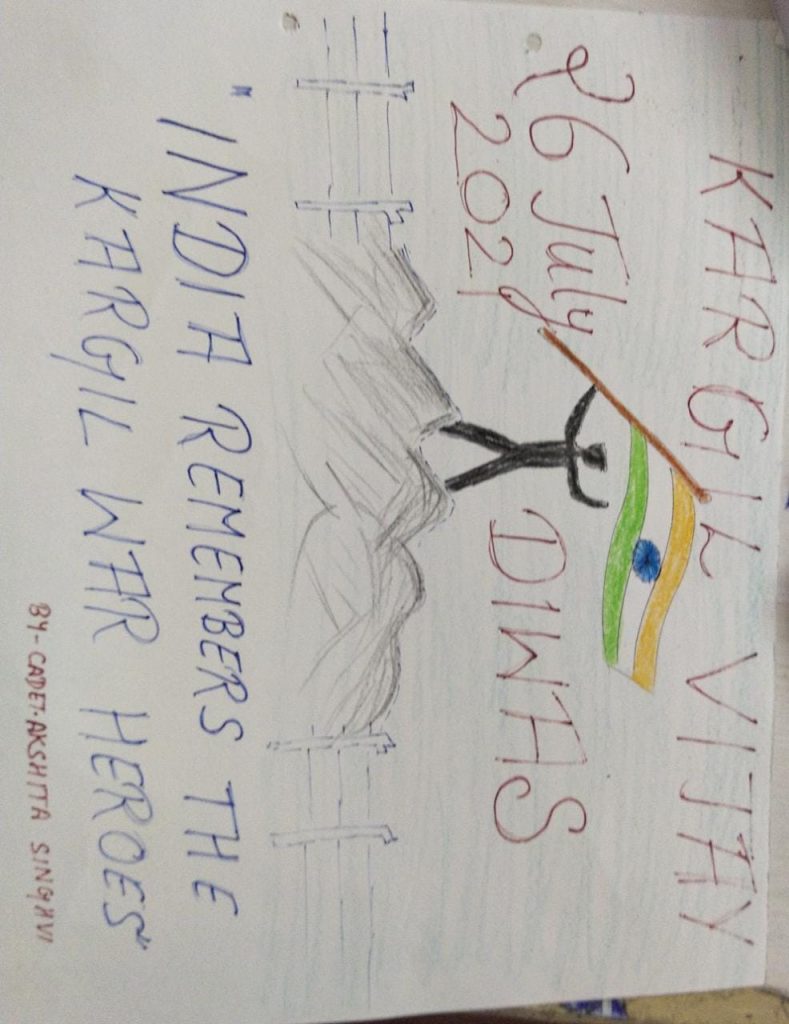 KARGIL VIJAY
26 July
2021
DIWAS
"INDIA REMEMBERS THE
KARGIL WAR HEROES"
BY-CADET.AKSHITA SINGHVI